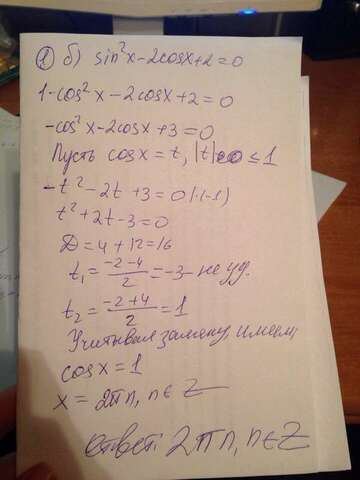 ① б) sin²x-2cosx+2=0
1-cos²x-2cosx+2=0
-cos²x-2cosx+3=0
Пусть cosx=t, |t|≤1
-t²-2t+3=0 |·(-1)
t²+2t-3=0
D=4+12=16
t₁=(-2-4)/2=-3- не уд.
t₂=(-2+4)/2=1
Учитывая замену, имеем;
cosx=1
x=2πn, n∈Z
Ответ: 2πn, n∈Z